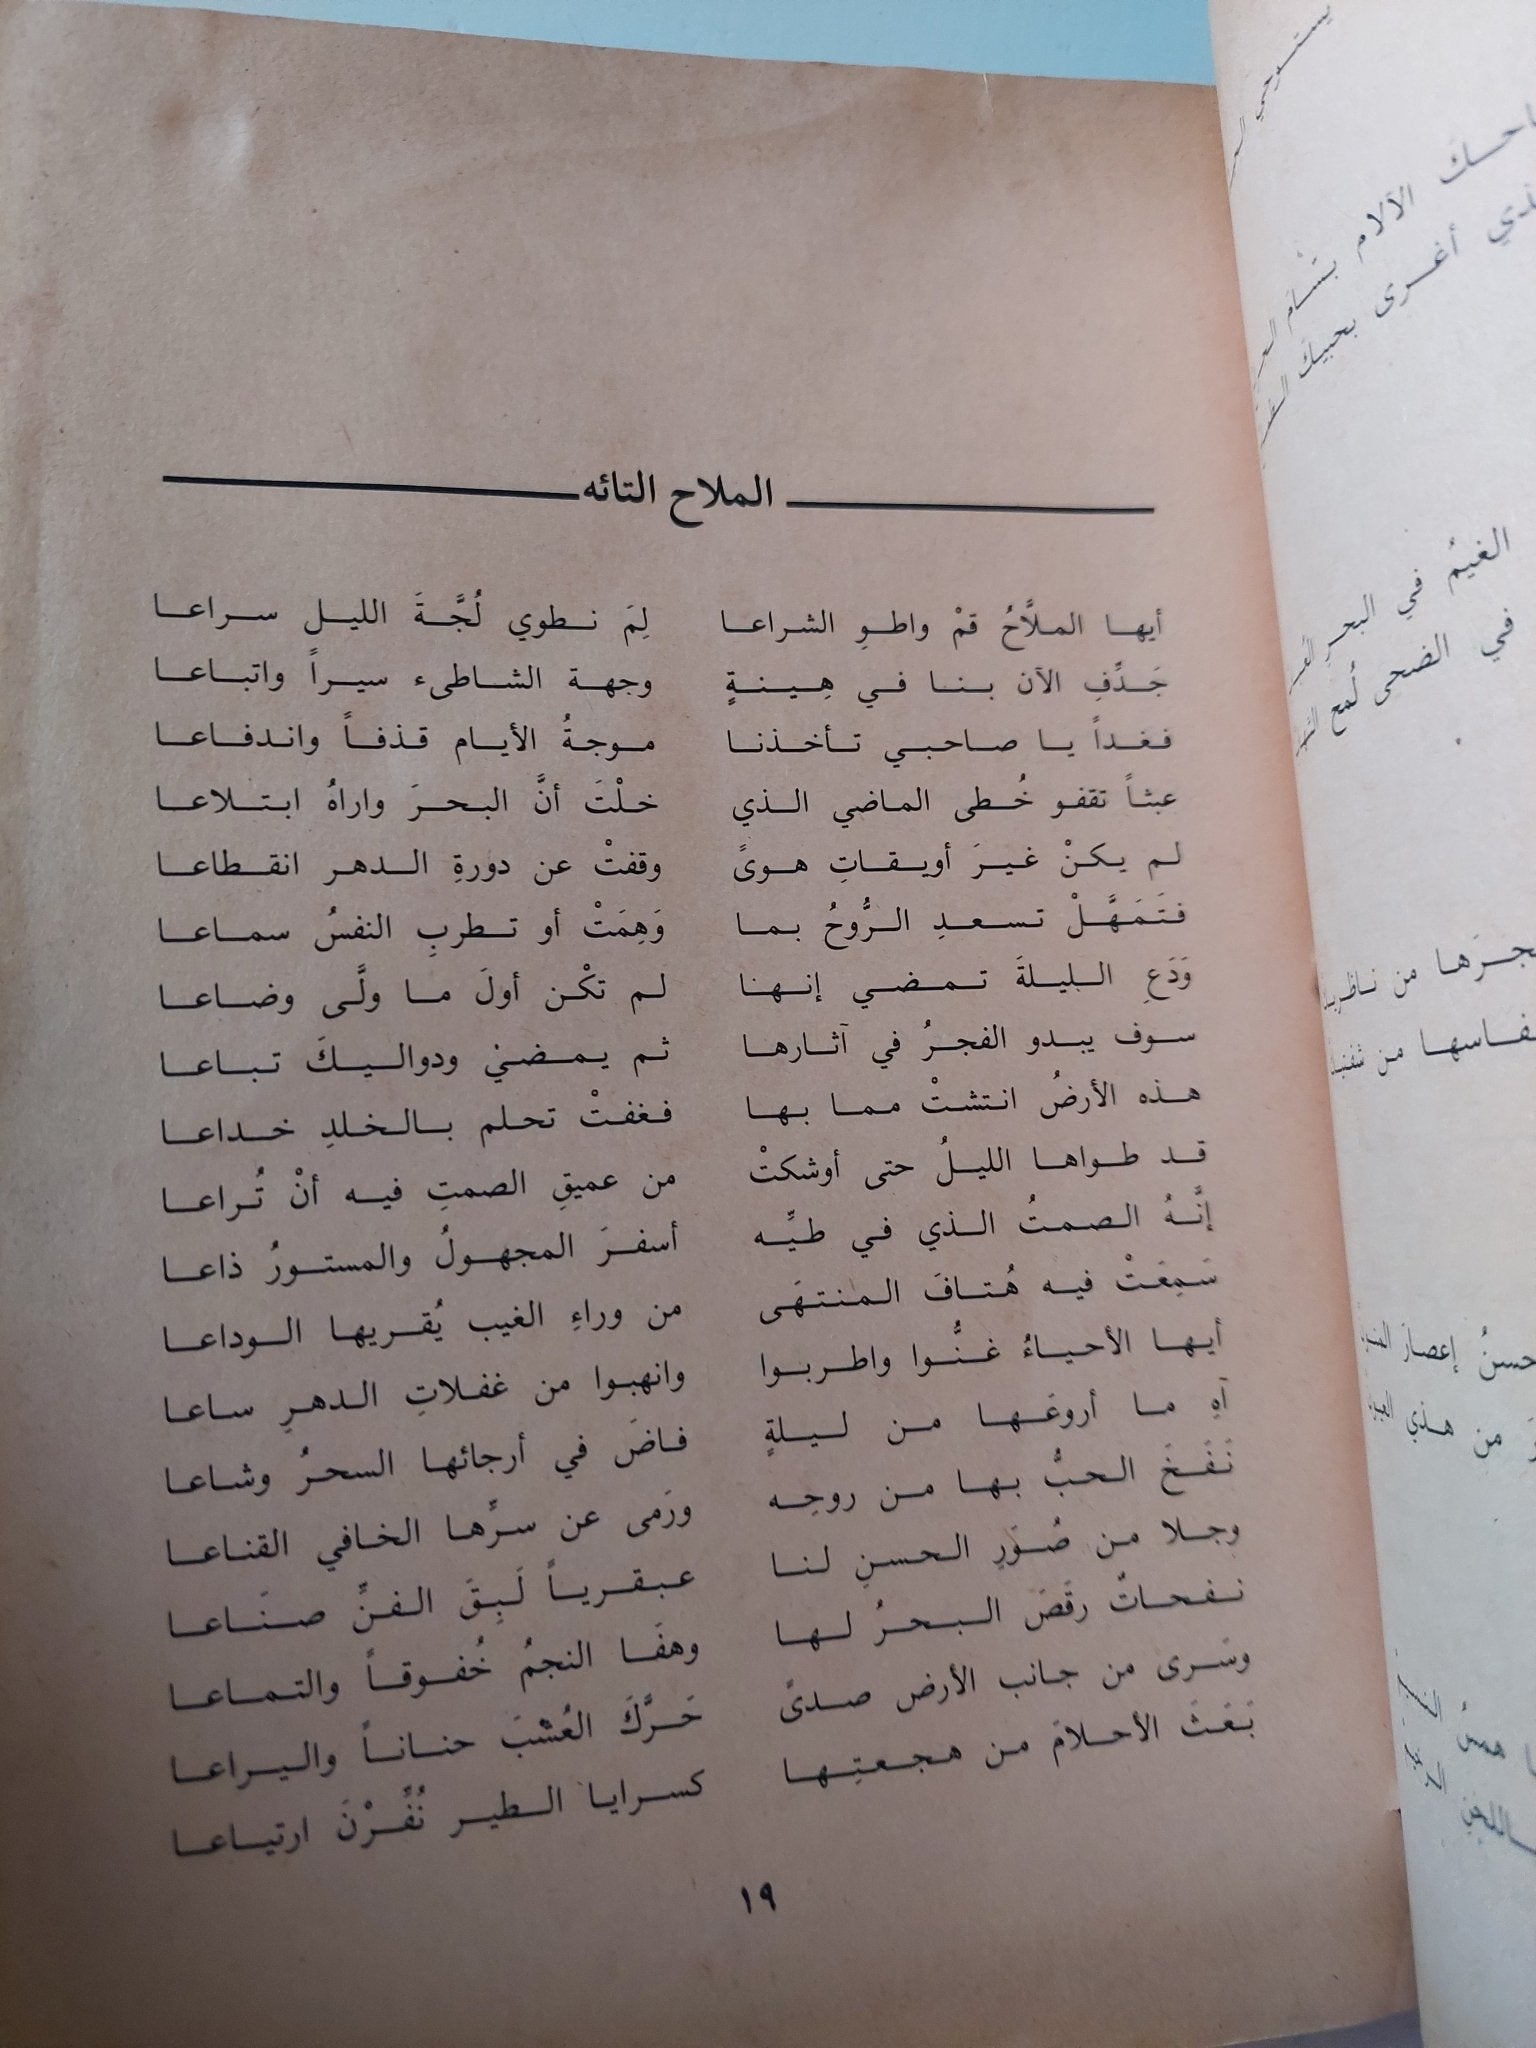 الملاح التائه
أيها الملَّاحُ قمْ واطوِ الشراعا لِمَ نطوي لُجَّةَ الليل سراعا
جَدِّفِ الآن بنا في هِينةٍ وجهة الشاطىء سيراً واتباعا
فغداً يا صاحبي تأخذنا موجةُ الأيام قذفاً واندفاعا
عبثاً تقفو خُطى الماضي الذي خلْتَ أنَّ البحرَ واراهُ ابتلاعا
لم يكنْ غيرَ أويقاتِ هوىً وقفتْ عن دورةِ الدهر انقطاعا
فتَمَهَّلْ تسعدِ الرُّوحُ بما وَهِمَتْ أو تطربِ النفسُ سماعا
وَدَعِ الليلةَ تمضي إنها لم تكْن أولَ ما ولَّى وضاعا
سوف يبدو الفجرُ في آثارها ثم يمضي ودواليكَ تباعا
هذه الأرضُ انتشتْ مما بها فغفتْ تحلم بالخلدِ خداعا
قد طواها الليلُ حتى أوشكتْ من عميقِ الصمتِ فيه أنْ تُراعا
إنَّهُ الصمتُ الذي في طيِّه أسفرَ المجهولُ والمستورُ ذاعا
سَمِعَتْ فيه هُتافَ المنتهَى من وراءِ الغيب يُقريها الوداعا
أيها الأحياءُ غنُّوا واطربوا وانهبوا من غفلاتِ الدهرِ ساعا
آهِ ما أروعَها من ليلةٍ فاضَ في أرجائها السحرُ وشاعا
نَفَخَ الحبُّ بها من روحِه ورَمى عن سرِّها الخافي القناعا
وجلا من صُوَرِ الحسنِ لنا عبقرياً لَبِقَ الفنِّ صنَاعا
نفحاتٌ رقَصَ البحرُ لها وهفَا النجمُ خُفوقاً والتماعا
وسَرى من جانب الأرض صدىً حَرَّكَ العُشْبَ حناناً واليراعا
بَعَثَ الأحلامَ من هجعتِها كسرايا الطير نُفِّرْنَ ارتياعا
١٩
الآلام
أغرى
الغيمُ في البحرِ
في الضحى لُمع
من
من
حسنُ إعصارَ
من هذي